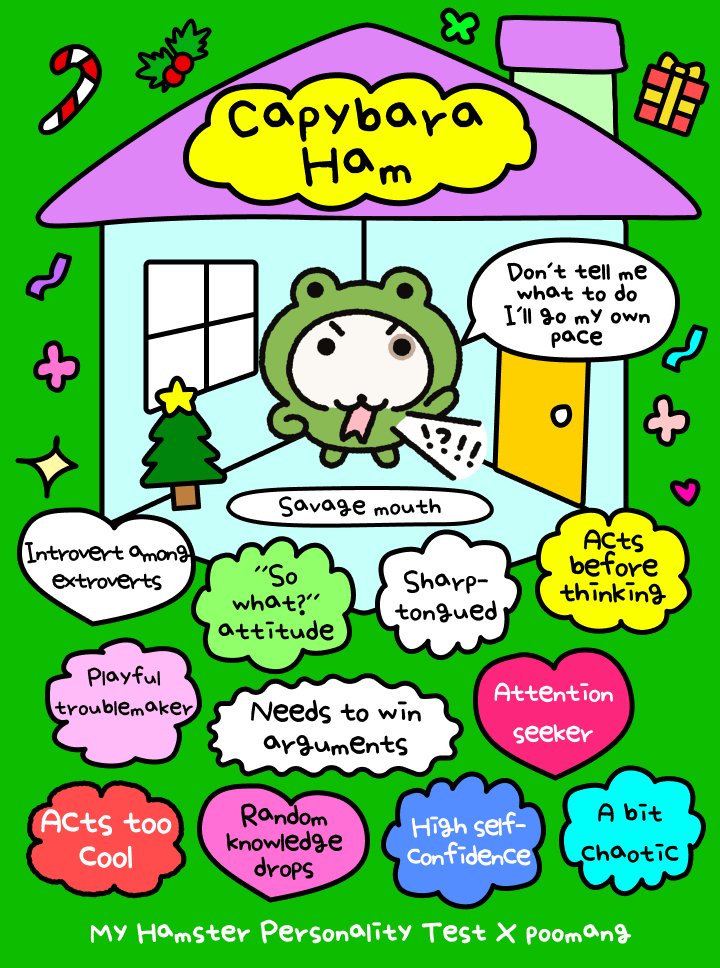 Capybara
Ham
Don't tell me
what to do
I'll go my own
pace
!?!!
Savage mouth
Introvert among
extroverts
"So
what?"
attitude
Sharp-
tongued
Acts
before
thinking
Playful
troublemaker
Needs to win
arguments
Attention
seeker
Acts too
cool
Random
knowledge
drops
High self-
confidence
A bit
chaotic
My Hamster Personality Test X poomang